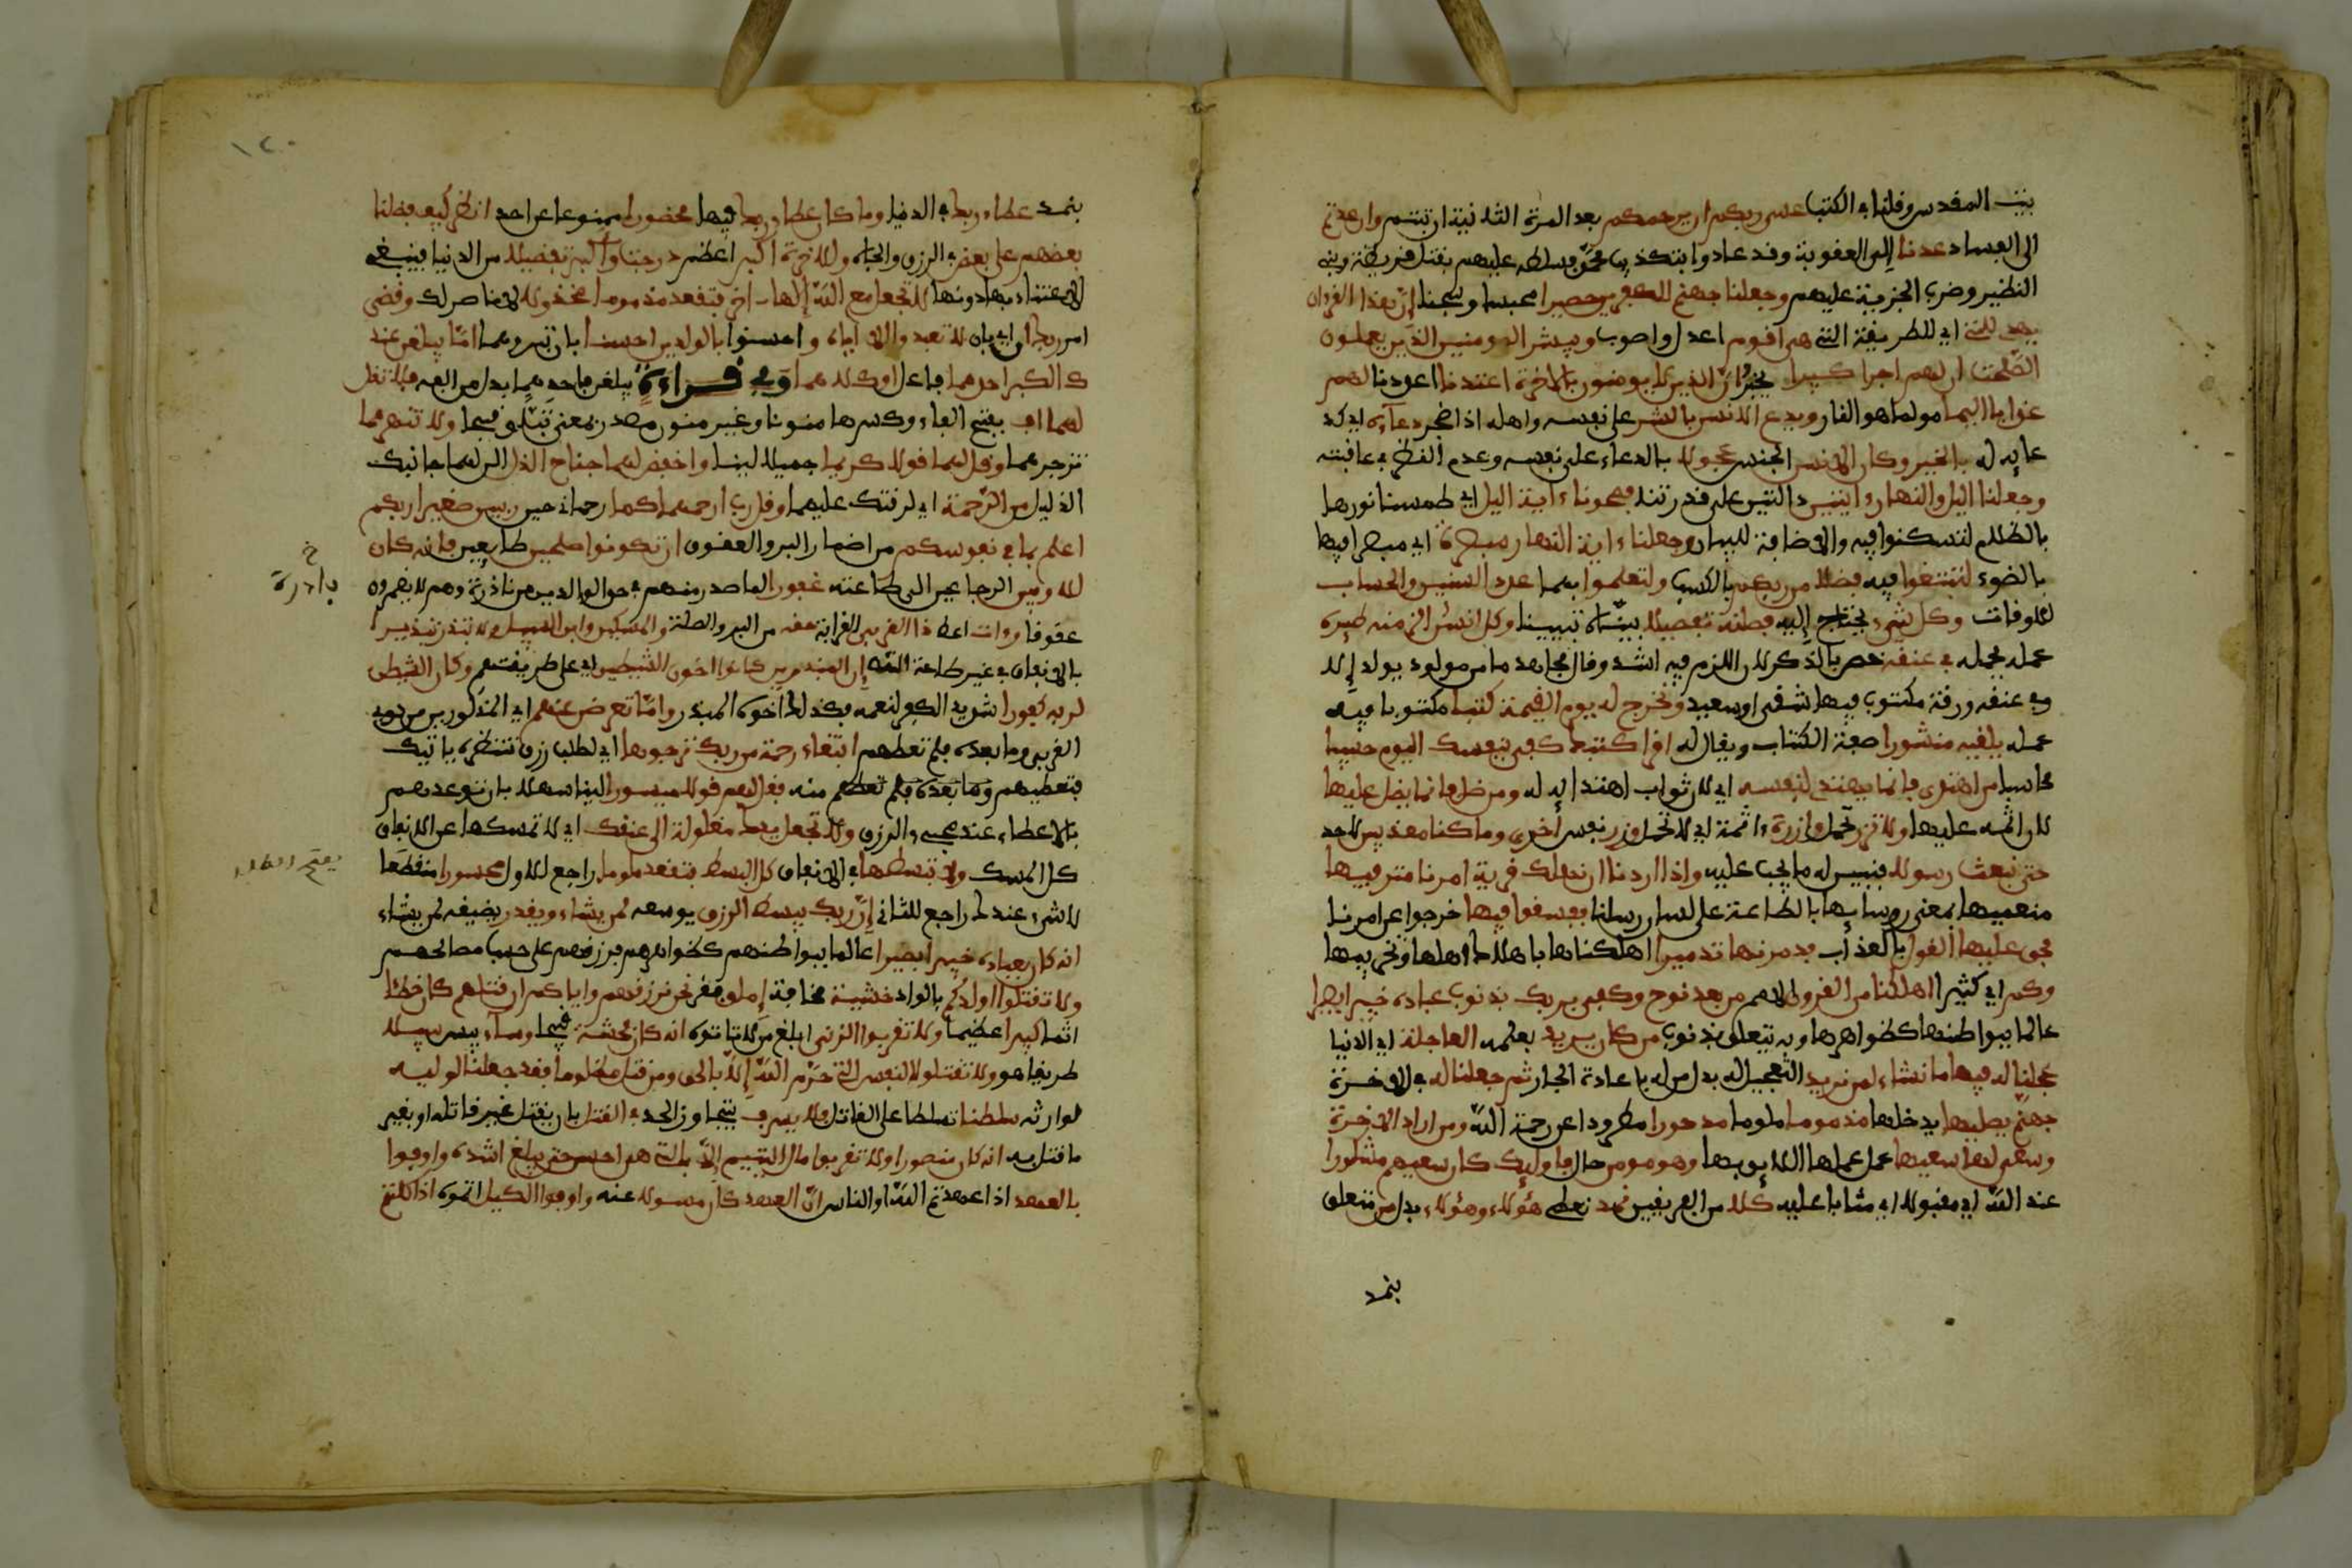 بيت المقدس وقلنا في الكتب عسى ربكم ان يرحمكم بعد المرة الثانية ان تبتم وان عدتم
الى الفساد عدنا الى العقوبة وقد عادوا بتكذيب محمد فسلط عليهم بقتل قريظة ونفي
النظير وضرب الجزية عليهم وجعلنا جهنم للكفرين حصيرا محبسا وسجنا ان هذا القران
يهدي للتي اي للطريقة التي هي اقوم اعدل واصوب ويبشر المومنين الذين يعملون
الصلحت ان لهم اجرا كبيرا ويخبر ان الذين لا يومنون بالاخرة اعتدنا اعددنا لهم
عذابا اليما مولما هو النار ويدع الانسن بالشر على نفسه واهله اذا ضجر دعاءه اي كد
عايه له بالخير وكان الانسن الجنس عجولا بالدعاء على نفسه وعدم النظر في عاقبته
وجعلنا اليل والنهار ءايتين دالتين على قدرتنا فمحونا ءاية اليل اي طمسنا نورها
بالظلام لتسكنوا فيه والاضافة للبيان وجعلنا ءاية النهار مبصرة اي مبصرا فيها
بالضوء لتبتغوا فيه فضلا من ربكم بالكسب ولتعلموا بهما عدد السنين والحساب
للاوقات وكل شيء يحتاج اليه فصلنه تفصيلا بينّاه تبيينا وكل انسن الزمنه طيره
عمله يحمله في عنقه خص بالذكر لان اللزم فيه اشد وقال مجاهد ما من مولود يولد إلا
وفي عنقه ورقة مكتوب فيها شقي او سعيد ونخرج له يوم القيمة كتبا مكتوبا فيه
عمله يلقيه منشورا صفة الكتاب ويقال له اقرا كتبك كفى بنفسك اليوم حسيبا
محاسبا من اهتدى فانما يهتدي لنفسه اي لان ثواب اهتدائه له ومن ضل فانما يضل عليها
لان اثمه عليها ولا تزر تحمل وازرة ءاثمة اي لا تحمل وزر نفس اخرى وما كنا معذبين لاحد
حتى نبعث رسولا فيبين له ما يجب عليه واذا اردنا ان نهلك قرية امرنا مترفيها
منعميها بمعنى روسايها بالطاعة على لسان رسلنا ففسقوا فيها خرجوا عن امرنا
فحق عليها القول بالعذاب فدمرنها تدميرا اهلكناها باهلاك اهلها وتخريبها
وكم اي كثيرا اهلكنا من القرون الامم من بعد نوح وكفى بربك بذنوب عباده خبيرا بصيرا
عالما ببواطنها كظواهرها وبه يتعلق بذنوب من كان يريد بعلمه العاجلة اي الدنيا
عجلنا له فيها ما نشاء لمن نريد التعجيل له بدل من له باعادة الجار ثم جعلنا له في الاخرة
جهنم يصليها يدخلها مذموما ملوما مدحورا مطرودا عن رحمة الله ومن اراد الاخرة
وسعى لها سعيها عمل عملها اللايق بها وهو مومن حال فاوليك كان سعيهم مشكورا
عند الله اي مقبولا اي مثابا عليه كلا من الفريقين نمد نعطي هؤلاء وهؤلاء بدل من متعلق
بنمد
١٢٠
بنمد عطاء ربك في الدنيا وما كان عطاء ربك فيها محضورا ممنوعا عن احد انظر كيف فضلنا
بعضهم على بعض في الرزق والجاه وللاخرة اكبر اعظم درجت واكبر تفضيلا من الدنيا فينبغي
الاعتناء بها دونها لا تجعل مع الله إلها ءاخر فتقعد مذموما مخذولا لا ناصر لك وقضى
امر ربك ان اي بان لا تعبدوا الا اياه و احسنوا بالولدين احسنا بان تبروهما اما يبلغن عند
ك الكبر احدهما فاعل او كلاهما وفي قراءة يبلغن فاحدهما بدل من الفه فلا تقل
لهما اف بفتح الفاء وكسرها منونا وغير منون مصدر بمعنى تبا وقبحا ولا تنهرهما
تزجرهما وقل لهما قولا كريما جميلا لينا واخفض لهما جناح الذل الن لهما جانبك
الذليل من الرحمة اي لرقتك عليهما وقل رب ارحمهما كما رحماني حين ربيني صغيرا ربكم
اعلم بما في نفوسكم من اضمار البر والعقوق ان تكونوا صلحين طايعين فانه كان
للاوبين الرجاعين الى طاعته غفورا لما صدر منهم في حق الوالدين من نادرة وهم لا يضمرون
خ
بادرة
عقوقا وءات اعط ذا القربى القرابة حقه من البر والصلة والمسكين وابن السبيل ولا تبذر تبذيرا
بالانفاق في غير طاعة الله ان المبذرين كانوا اخون الشيطين اي على طريقتهم وكان الشيطن
لربه كفورا شديد الكفر لنعمه فكذلك اخوه المبذر واما تعرض عنهم اي المذكورين من ذوي
القربى وما بعده فلم تعطهم ابتغاء رحمة من ربك ترجوها اي لطلب رزق تنتظره ياتيك
فتعطيهم وما بعده فلم تعطهم منه فقل لهم قولا ميسورا لينا سهلا بان توعدهم
بالاعطاء عند مجيء الرزق ولا تجعل يدك مغلولة الى عنقك اي لا تمسكها عن الانفاق
كل المسك ولا تبسطها في الانفاق كل البسط فتقعد ملوما راجع للاول محسورا منقطعا
لا شيء عندك راجع للثاني ان ربك يبسط الرزق يوسعه لمن يشاء ويقدر يضيقه لمن يشاء
انه كان بعباده خبيرا بصيرا عالما ببواطنهم كظواهرهم فرزقهم على حسب مصالحهم
ولا تقتلوا اولدكم بالواد خشية مخافة املق فقر نحن نرزقهم واياكم ان قتلهم كان خطئا
اثما كبيرا عظيما ولا تقربوا الزنى ابلغ من لا تاتوه انه كان فحشة قبيحا وساء بيس سبيلا
طريقا هو ولا تقتلوا النفس التي حرم الله الا بالحق ومن قتل مظلوما فقد جعلنا لوليه
لوارثه سلطنا تسلطا على القاتل فلا يسرف يتجاوز الحد في القتل بان يقتل غير قاتله او بغير
ما قتل به انه كان منصورا ولا تقربوا مال اليتيم الا بالتي هي احسن حتى يبلغ اشده واوفوا
بالعهد اذا عهدتم الله او الناس ان العهد كان مسولا عنه واوفوا الكيل اتموه اذا كلتم